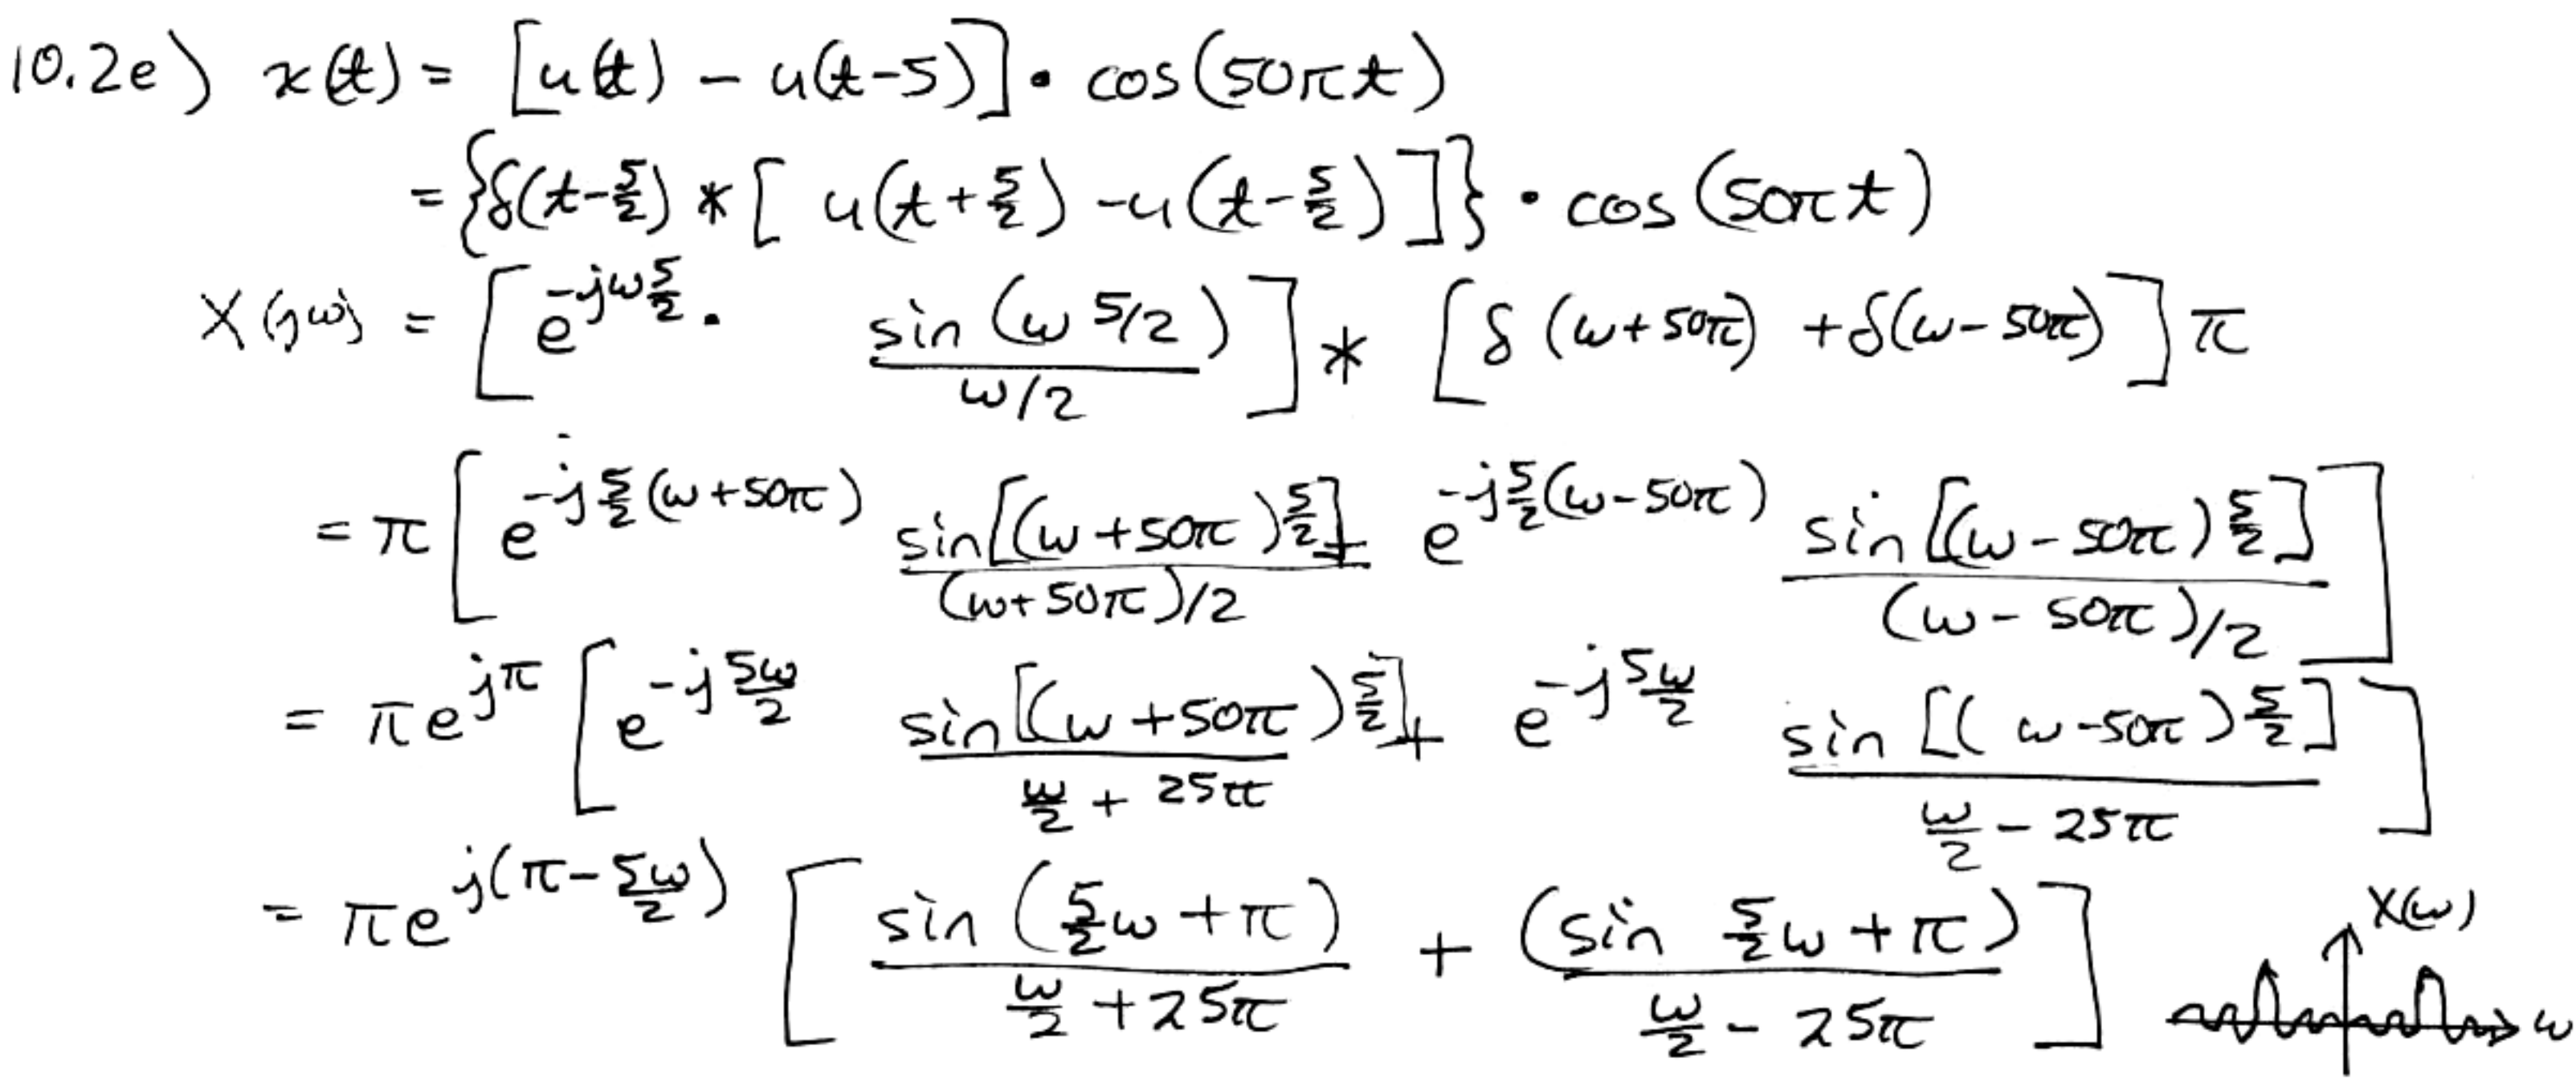 10.2e) x(t) = [u(t) − u(t−5)] • cos(50πt)
= {δ(t−5/2) * [u(t+5/2) −u(t−5/2)]} • cos(50πt)
X(jω) = [e^{−jω5/2} • sin(ω 5/2) / (ω/2)] * [δ(ω+50π) +δ(ω−50π)] π
= π [e^{−j5/2(ω+50π)} sin[(ω+50π)5/2] / ((ω+50π)/2) + e^{−j5/2(ω−50π)} sin[(ω−50π)5/2] / ((ω−50π)/2)]
= πe^{jπ} [e^{−j5ω/2} sin[(ω+50π)5/2] / (ω/2 + 25π) + e^{−j5ω/2} sin[(ω−50π)5/2] / (ω/2 − 25π)]
= πe^{j(π−5ω/2)} [sin(5/2ω+π) / (ω/2 +25π) + (sin 5/2ω+π) / (ω/2 − 25π)]
X(ω)
ω